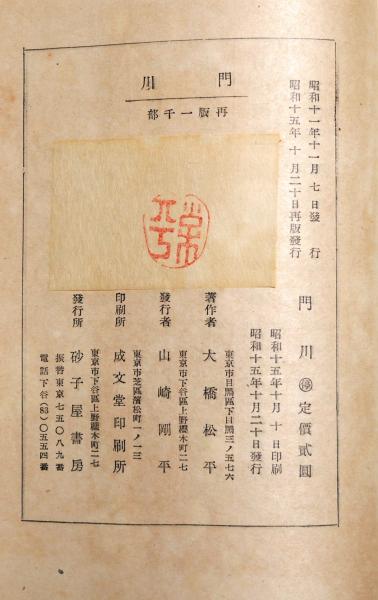 昭和十一年十一月七日發行
昭和十五年十月二十日再版發行
門川
再版一千部
門川 停 定價貳圓
昭和十五年十月十日印刷
昭和十五年十月二十日發行
東京市目黑區下目黑三ノ五七六
著作者 大橋松平
東京市下谷區上野櫻木町二七
發行者 山崎剛平
東京市芝區濱松町一ノ一三
印刷所 成文堂印刷所
東京市下谷區上野櫻木町二七
發行所 砂子屋書房
振替東京七五〇八九番
電話下谷(83)〇五五四番